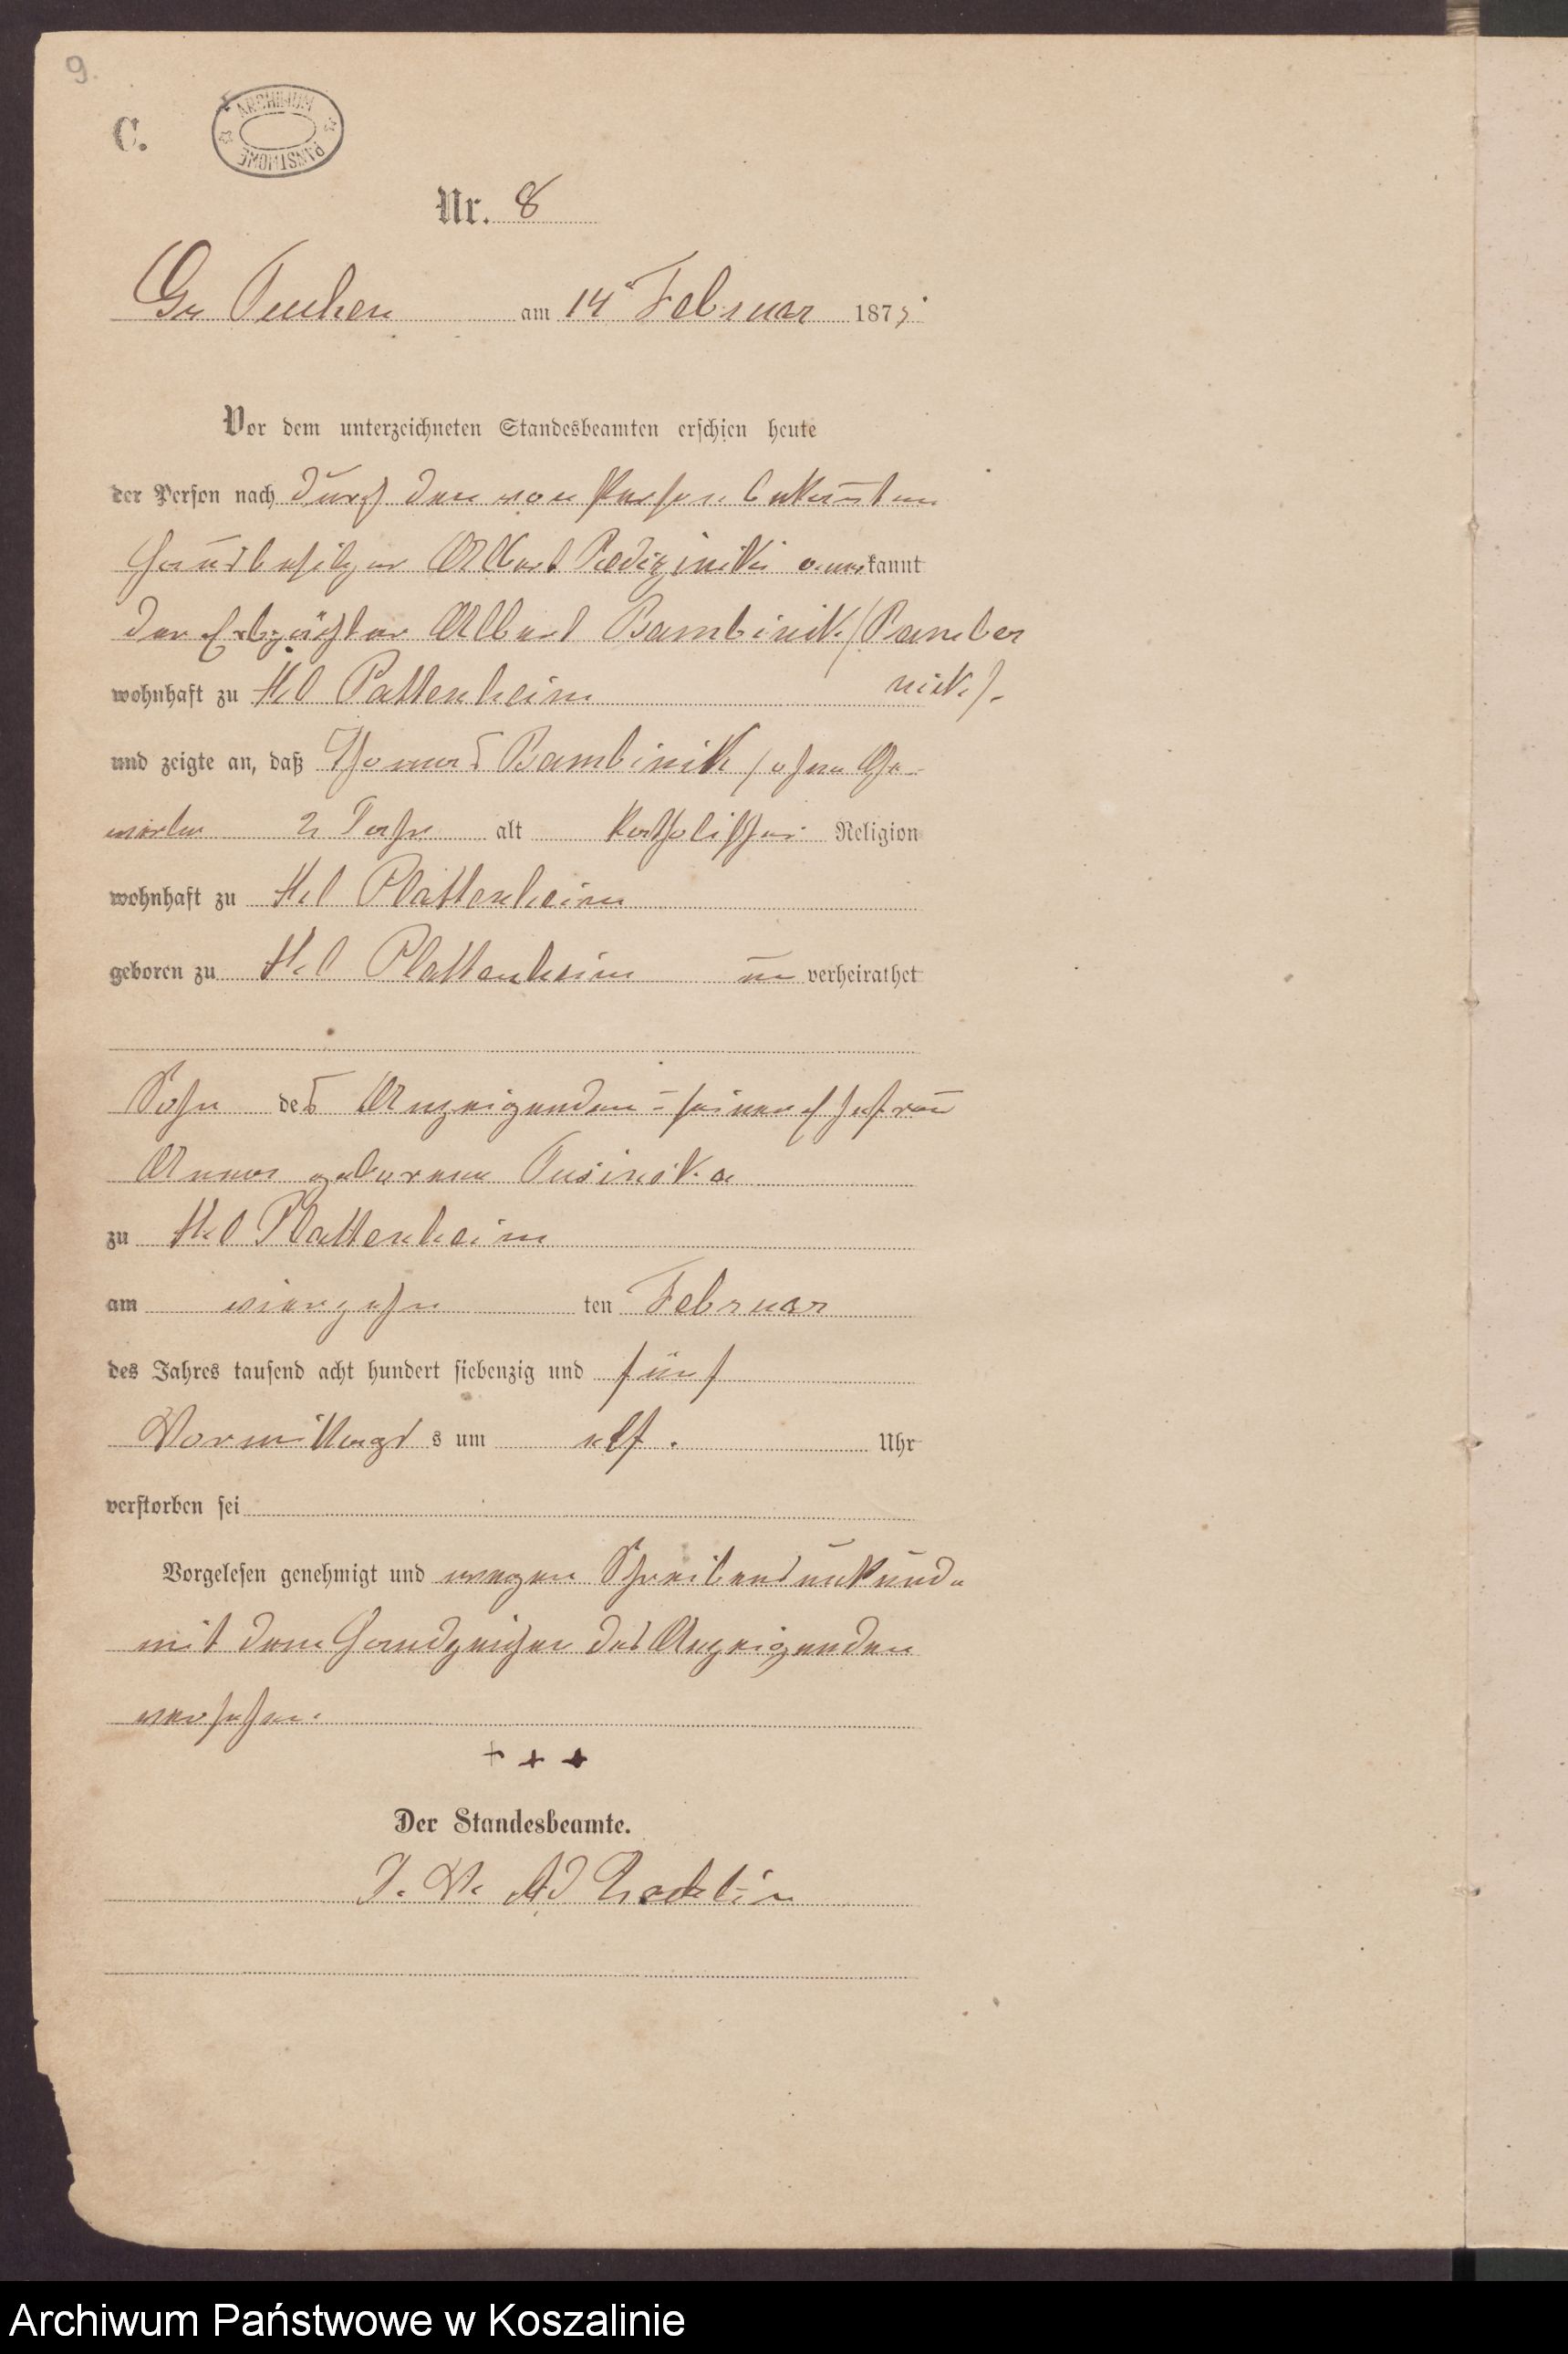 9.
C.
ARCHIWUM PAŃSTWOWE
Nr. 8
Gr Tuchen am 14 Februar 1875
Vor dem unterzeichneten Standesbeamten erschien heute
der Person nach durch den von Person bekannten
Hausbesitzer Albert anerkannt
der Erbpächter Albert Bambinik / Bamber
nick /.
wohnhaft zu Kl Pattenheim
und zeigte an, daß Thomas Bambinik / ohne Ge-
werbe 2 Jahr alt katholischer Religion
wohnhaft zu Kl Plattenheim
geboren zu Kl Plattenheim un verheirathet
Sohn des Anzeigenden seiner Ehefrau
Anna geborene
zu Kl Plattenheim
am vierzehn ten Februar
des Jahres tausend acht hundert siebenzig und fünf
Vormittags um elf. Uhr
verstorben sei
Vorgelesen genehmigt und wegen Schreibensunkunde
mit dem Handzeichen des Anzeigenden
versehen.
+ + +
Der Standesbeamte.
J. V.
Archiwum Państwowe w Koszalinie